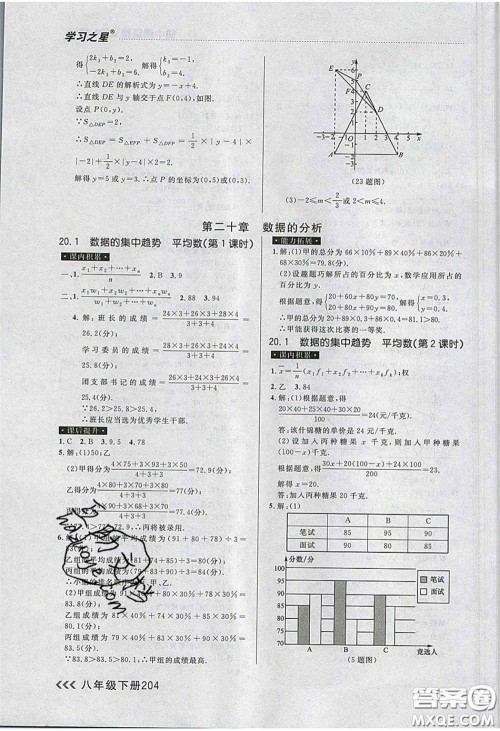 学习之星®
得{2k₂+b₂=2, -2k₂+b₂=6. 解得{k₂=-1, b₂=4.
∴直线 DE 的解析式为 y=-x+4.
∴直线 DE 与 y 轴交于点 F(0,4),如图.
设点 P(0,y).
∵S△DEP=S△EFP+S△DFP=1/2×|y-4|×
|-2|+1/2×|y-4|×|2|=2,
解得 y=5 或 y=3. ∴点 P 的坐标为(0,5)或(0,3).
(23题图)
(3)-2≤m<2/3 或 2<m≤4.
第二十章 数据的分析
20.1 数据的集中趋势 平均数(第1课时)
课内积累
一、1. (x₁+x₂+…+xₙ)/n 2. B 3. 9
二、1. (x₁w₁+x₂w₂+…+xₙwₙ)/(w₁+w₂+…+wₙ) 2. 88 3. 94
4. 解:班长的成绩=(24×3+26×3+28×4)/(3+3+4)=
26.2(分);
学习委员的成绩=(28×3+26×3+24×4)/(3+3+4)=
25.8(分);
团支部书记的成绩=(26×3+24×3+26×4)/(3+3+4)=
25.4(分).
∵26.2>25.8>25.4,
∴班长应当选为优秀学生干部.
课后提升
1. C 2. B 3. 9.5 4. 78
5. 解:(1)50;
(2)甲得分为(4×75+3×93+3×50)/(4+3+3)=72.9(分)
乙得分为(4×80+3×70+3×80)/(4+3+3)=77(分).
6.
甲组的平均成绩为(91+80+78)÷3
=83(分).
(2)甲组成绩为 91×40%+80×30%+78×30%
=83.8(分).
∵83.8>83.5>80.1,∴甲组的成绩最高.
能力拓展
1. 解:(1)甲的总分为 66×10%+89×40%+86×20%+
68×30%=79.8(分).
(2)设趣题巧解所占的百分比为 x,数学应用所占的
百分比为 y.
根据题意,得{20+60x+80y=70, 20+80x+90y=80. 解得{x=0.3, y=0.4.
∴甲的总分为 20+89×0.3+86×0.4=81.1>80,
∴甲能获得这次比赛的一等奖.
20.1 数据的集中趋势 平均数(第2课时)
课内积累
1. x̄=1/n(x₁f₁+x₂f₂+…+xₖfₖ);权
2. 乙 3. 84
4. 解:(1)根据题意,得
(20×40+25×40+30×20)/100=24(元/千克).
答:该什锦糖的单价是 24 元/千克.
(2)设加入丙种糖果 x 千克,则加入甲种糖果
(100-x)千克.
根据题意,得(30x+20(100-x)+24×100)/200=24-4.
解得 x=20.
答:加入丙种糖果 20 千克.
5. 解:(1)
A B C
笔试 85 95 90
面试 90 80 85
分数/分
100
95
90
85
80
75
70
笔试
面试
A B C 竞选人
(5题图)
<<< 八年级下册204
答案圈
MXQE.COM